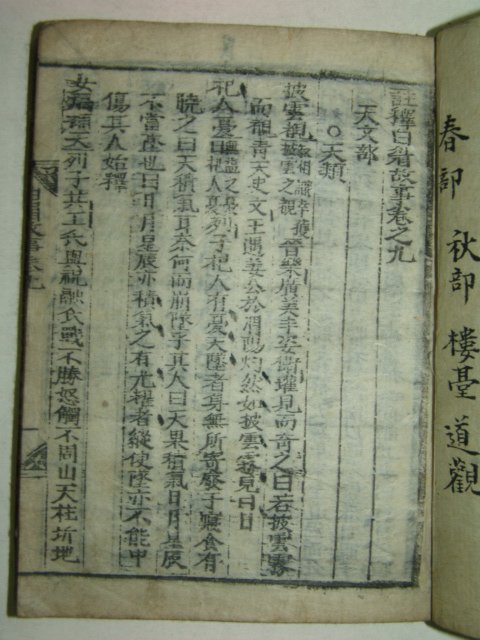 春部 秋部 樓臺 道觀
註釋白眉故事卷之九
天文部
○天類
披雲覩披雲之覩晉樂廣美丰姿衛瓘見而奇之曰若披雲霧
而覩青天史文王遇姜公於渭陽灼然如披雲霧見白日
杞人憂杞人憂列子杞人有憂天墜者身無所寄廢于寢食有
曉之曰天積氣耳奈何而崩墜乎其人曰天果積氣日月星辰
不當墜也曰日月星辰亦積氣之有光耀者縱使墜亦不能中
傷其人始釋
女媧補天列子共工氏與祝融氏戰不勝怒觸不周山天柱折地
白眉故事卷九